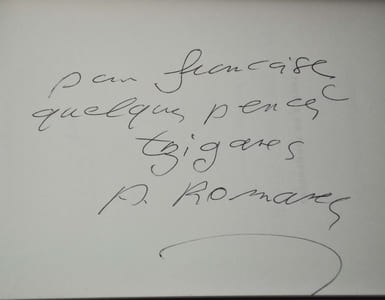 pour françoise
quelques pencés
tziganes
A. Romanes